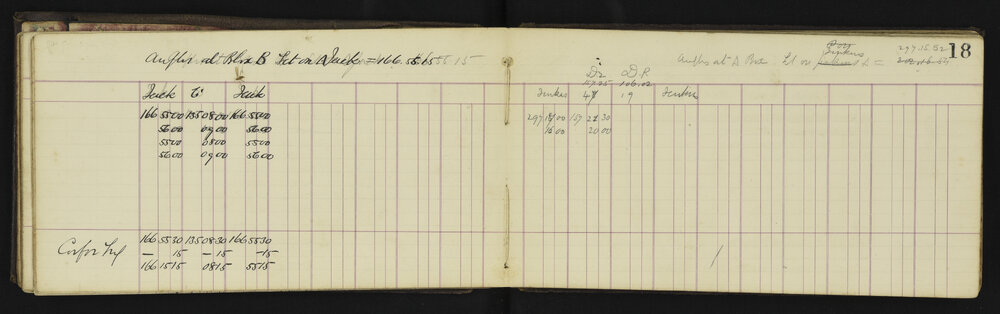 Angles at Plox B Set on Jack = 166.55.15
Jack C' Jack
166 55 00 135 08 00 166 55 00
56 00 09 00 56 00
55 00 08 00 55 00
56 00 09 00 56 00
166 55 30 135 08 30 166 55 30
— 15 — 15 — 15
166 15 15 08 15 55 15
18
297.15.52
Jenkins
Angles at A Box. Set on
D2 D.P.
157.25 106.02
Jenkes 47 19 Jenkes
297 15 00 157 21 30
16 00 20 00